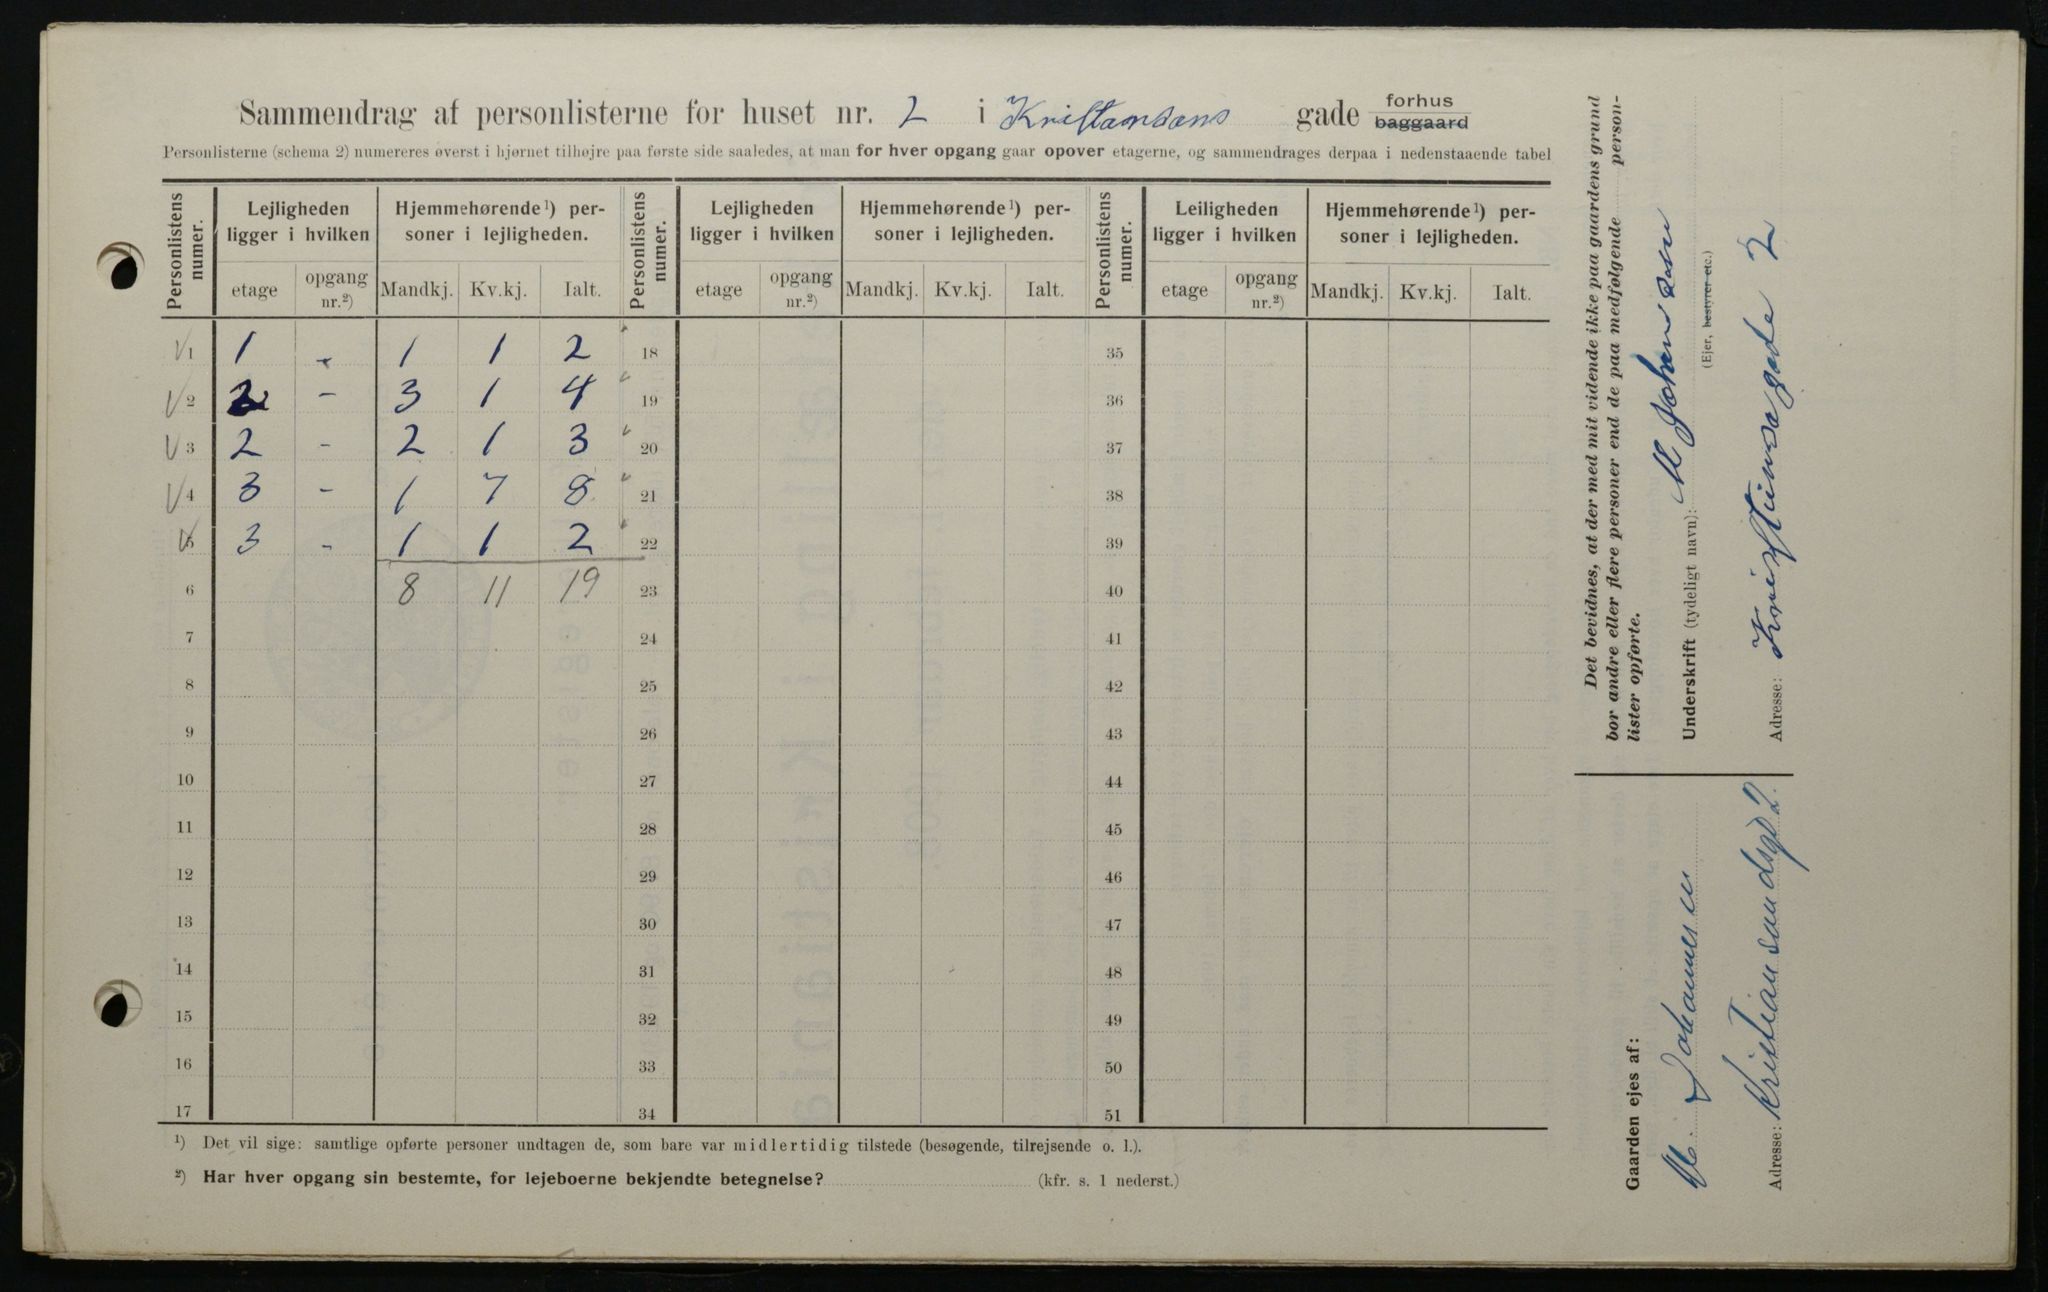 Sammendrag af personlisterne for huset nr. 2 i Kristiansans gade forhus baggaard
Personlisterne (schema 2) numereres øverst i hjørnet tilhøjre paa første side saaledes, at man for hver opgang gaar opover etagerne, og sammendrages derpaa i nedenstaaende tabel
Personlistens numer. Lejligheden ligger i hvilken Hjemmehørende ¹) personer i lejligheden. Personlistens numer. Lejligheden ligger i hvilken Hjemmehørende ¹) personer i lejligheden. Personlistens numer. Leiligheden ligger i hvilken Hjemmehørende ¹) personer i lejligheden.
etage opgang nr.²) Mandkj. Kv.kj. Ialt. etage opgang nr.²) Mandkj. Kv.kj. Ialt. etage opgang nr.²) Mandkj. Kv.kj. Ialt.
1 1 - 1 1 2 18 35
2 2 - 3 1 4 19 36
3 2 - 2 1 3 20 37
4 3 - 1 7 8 21 38
5 3 - 1 1 2 22 39
6 8 11 19 23 40
7 24 41
8 25 42
9 26 43
10 27 44
11 28 45
12 29 46
13 30 47
14 31 48
15 32 49
16 33 50
17 34 51
¹) Det vil sige: samtlige opførte personer undtagen de, som bare var midlertidig tilstede (besøgende, tilrejsende o. l.).
²) Har hver opgang sin bestemte, for lejeboerne bekjendte betegnelse? (kfr. s. 1 nederst.)
Det bevidnes, at der med mit vidende ikke paa gaardens grund
bor andre eller flere personer end de paa medfølgende person-
lister opførte.
Underskrift (tydeligt navn): M Johannesen
(Ejer, bestyrer etc.)
Adresse: Kristiansa gade 2
Gaarden ejes af:
M. Johannesen
Adresse: Kristiansandsgd 2.